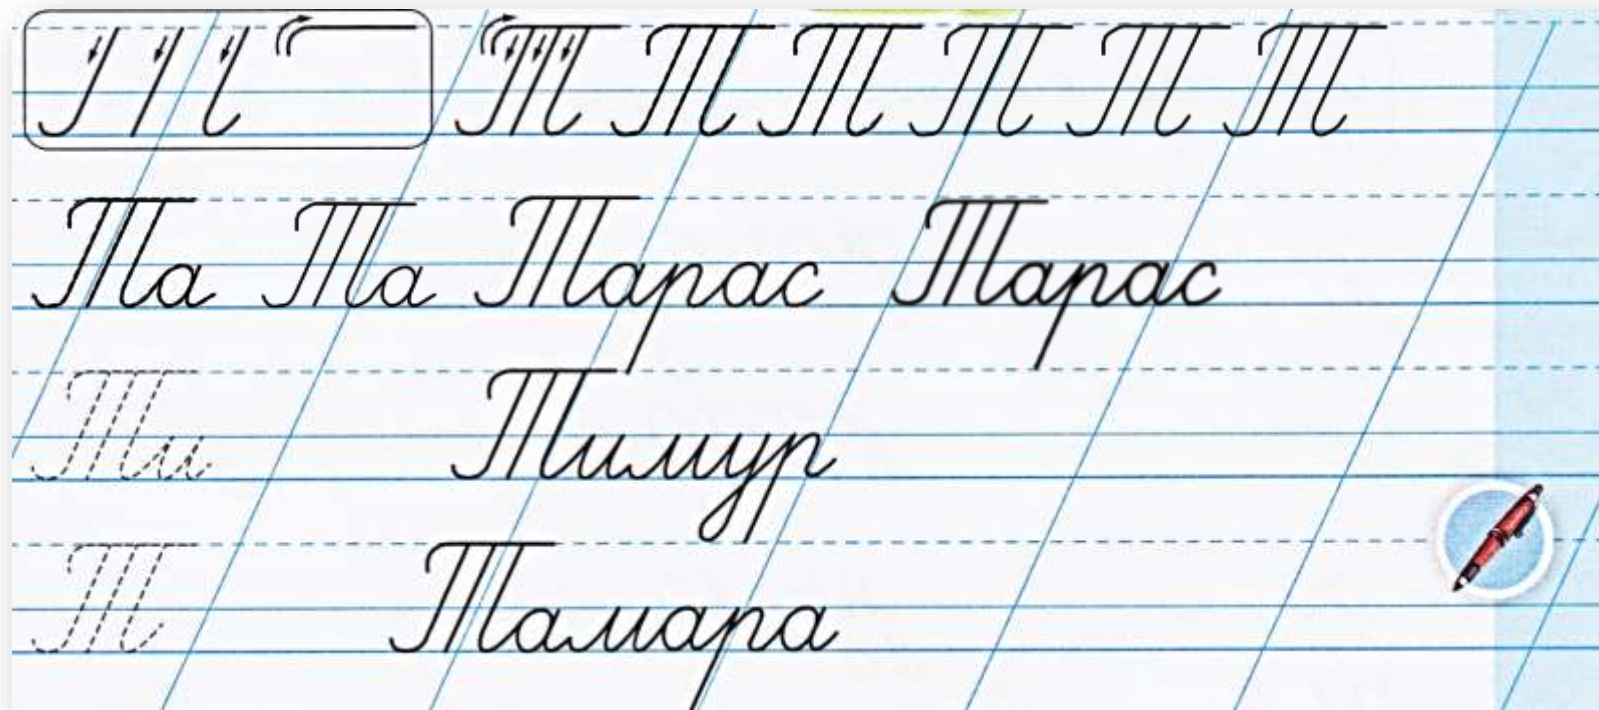 Т Т Т Т Т Т
Та Та Тарас Тарас
Ти Тимур
Т Тамара